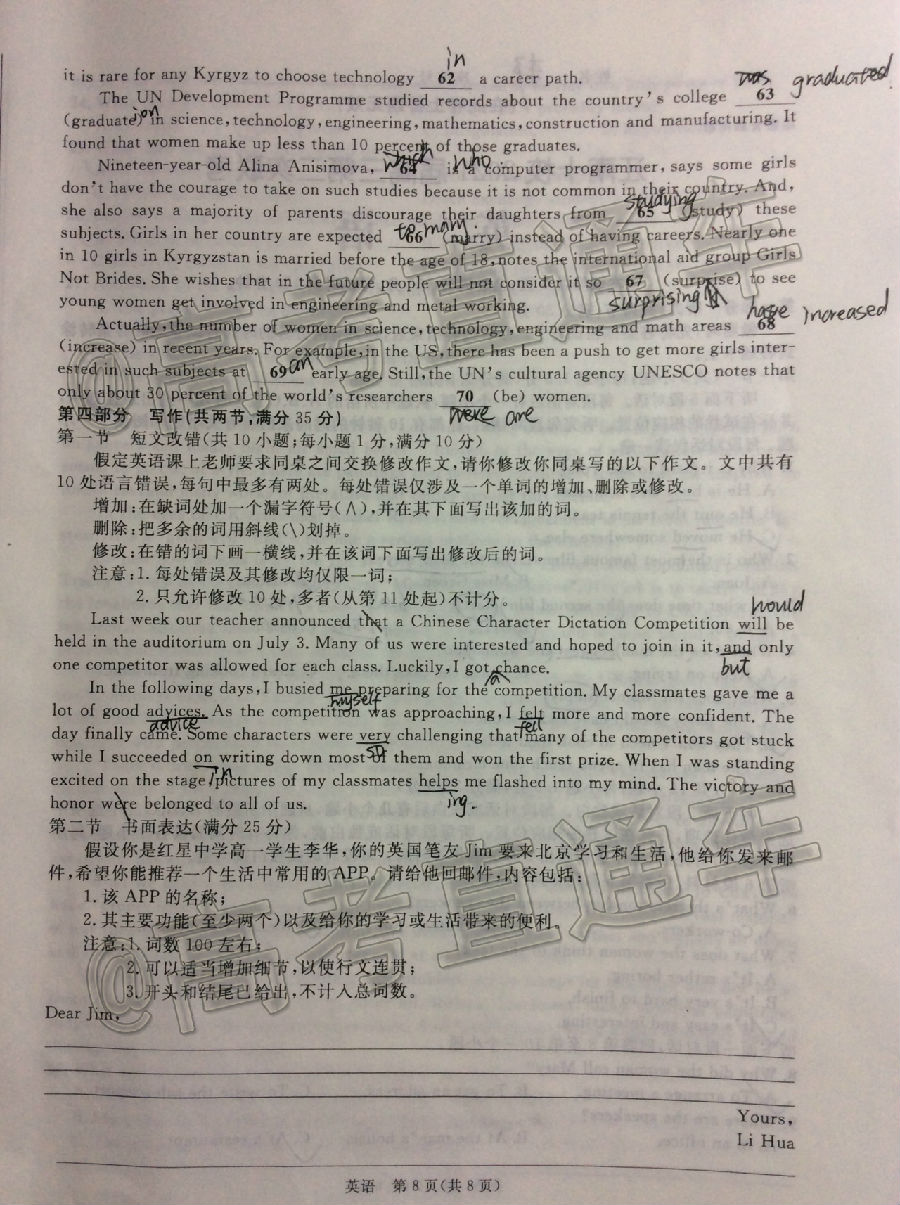 in
it is rare for any Kyrgyz to choose technology 62 a career path.
was graduated
The UN Development Programme studied records about the country's college 63
(graduate) in science, technology, engineering, mathematics, construction and manufacturing. It
ion
found that women make up less than 10 percent of those graduates.
which who
Nineteen-year-old Alina Anisimova, 64 is a computer programmer, says some girls
don't have the courage to take on such studies because it is not common in their country. And,
studying
she also says a majority of parents discourage their daughters from 65 (study) these
to marry
subjects. Girls in her country are expected 66 (marry) instead of having careers. Nearly one
in 10 girls in Kyrgyzstan is married before the age of 18, notes the international aid group Girls
Not Brides. She wishes that in the future people will not consider it so 67 (surprise) to see
surprising
young women get involved in engineering and metal working.
have increased
Actually, the number of women in science, technology, engineering and math areas 68
(increase) in recent years. For example, in the US, there has been a push to get more girls inter-
an
ested in such subjects at 69 early age. Still, the UN's cultural agency UNESCO notes that
only about 30 percent of the world's researchers 70 (be) women.
were are
第四部分 写作(共两节,满分 35 分)
第一节 短文改错(共 10 小题;每小题 1 分,满分 10 分)
假定英语课上老师要求同桌之间交换修改作文,请你修改你同桌写的以下作文。文中共有
10 处语言错误,每句中最多有两处。每处错误仅涉及一个单词的增加、删除或修改。
增加:在缺词处加一个漏字符号(∧),并在其下面写出该加的词。
删除:把多余的词用斜线(\)划掉。
修改:在错的词下画一横线,并在该词下面写出修改后的词。
注意:1. 每处错误及其修改均仅限一词;
2. 只允许修改 10 处,多者(从第 11 处起)不计分。
would
Last week our teacher announced that a Chinese Character Dictation Competition will be
held in the auditorium on July 3. Many of us were interested and hoped to join in it, and only
but
one competitor was allowed for each class. Luckily, I got chance.
a
In the following days, I busied me preparing for the competition. My classmates gave me a
myself
lot of good advices. As the competition was approaching, I felt more and more confident. The
advice fell
day finally came. Some characters were very challenging that many of the competitors got stuck
so
while I succeeded on writing down most of them and won the first prize. When I was standing
in
excited on the stage, pictures of my classmates helps me flashed into my mind. The victory and
ing.
honor were belonged to all of us.
第二节 书面表达(满分 25 分)
假设你是红星中学高一学生李华,你的英国笔友 Jim 要来北京学习和生活,他给你发来邮
件,希望你能推荐一个生活中常用的 APP。请给他回邮件,内容包括:
1. 该 APP 的名称;
2. 其主要功能(至少两个)以及给你的学习或生活带来的便利。
注意:1. 词数 100 左右;
2. 可以适当增加细节,以使行文连贯;
3. 开头和结尾已给出,不计入总词数。
Dear Jim,
Yours,
Li Hua
英语 第 8 页(共 8 页)
@高考直通车
@高考直通车